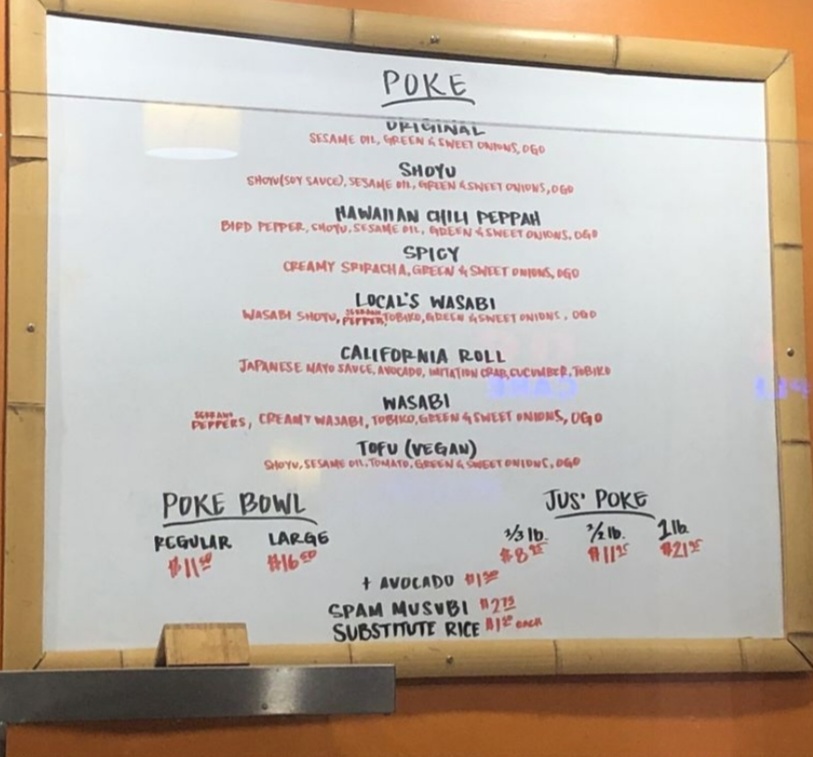 POKE
ORIGINAL
SESAME OIL, GREEN & SWEET ONIONS, OGO
SHOYU
SHOYU (SOY SAUCE), SESAME OIL, GREEN & SWEET ONIONS, OGO
HAWAIIAN CHILI PEPPAH
BIRD PEPPER, SHOYU, SESAME OIL, GREEN & SWEET ONIONS, OGO
SPICY
CREAMY SRIRACHA, GREEN & SWEET ONIONS, OGO
LOCAL'S WASABI
WASABI SHOYU, SERRANO PEPPER, TOBIKO, GREEN & SWEET ONIONS, OGO
CALIFORNIA ROLL
JAPANESE MAYO SAUCE, AVOCADO, IMITATION CRAB, CUCUMBER, TOBIKO
WASABI
SERRANO PEPPERS, CREAMY WASABI, TOBIKO, GREEN & SWEET ONIONS, OGO
TOFU (VEGAN)
SHOYU, SESAME OIL, TOMATO, GREEN & SWEET ONIONS, OGO
POKE BOWL JUS' POKE
REGULAR LARGE 1/3 lb. 1/2 lb. 1 lb.
$11.50 $16.50 $8.25 $11.25 $21.95
+ AVOCADO $1.50
SPAM MUSUBI $2.75
SUBSTITUTE RICE $1.50 EACH